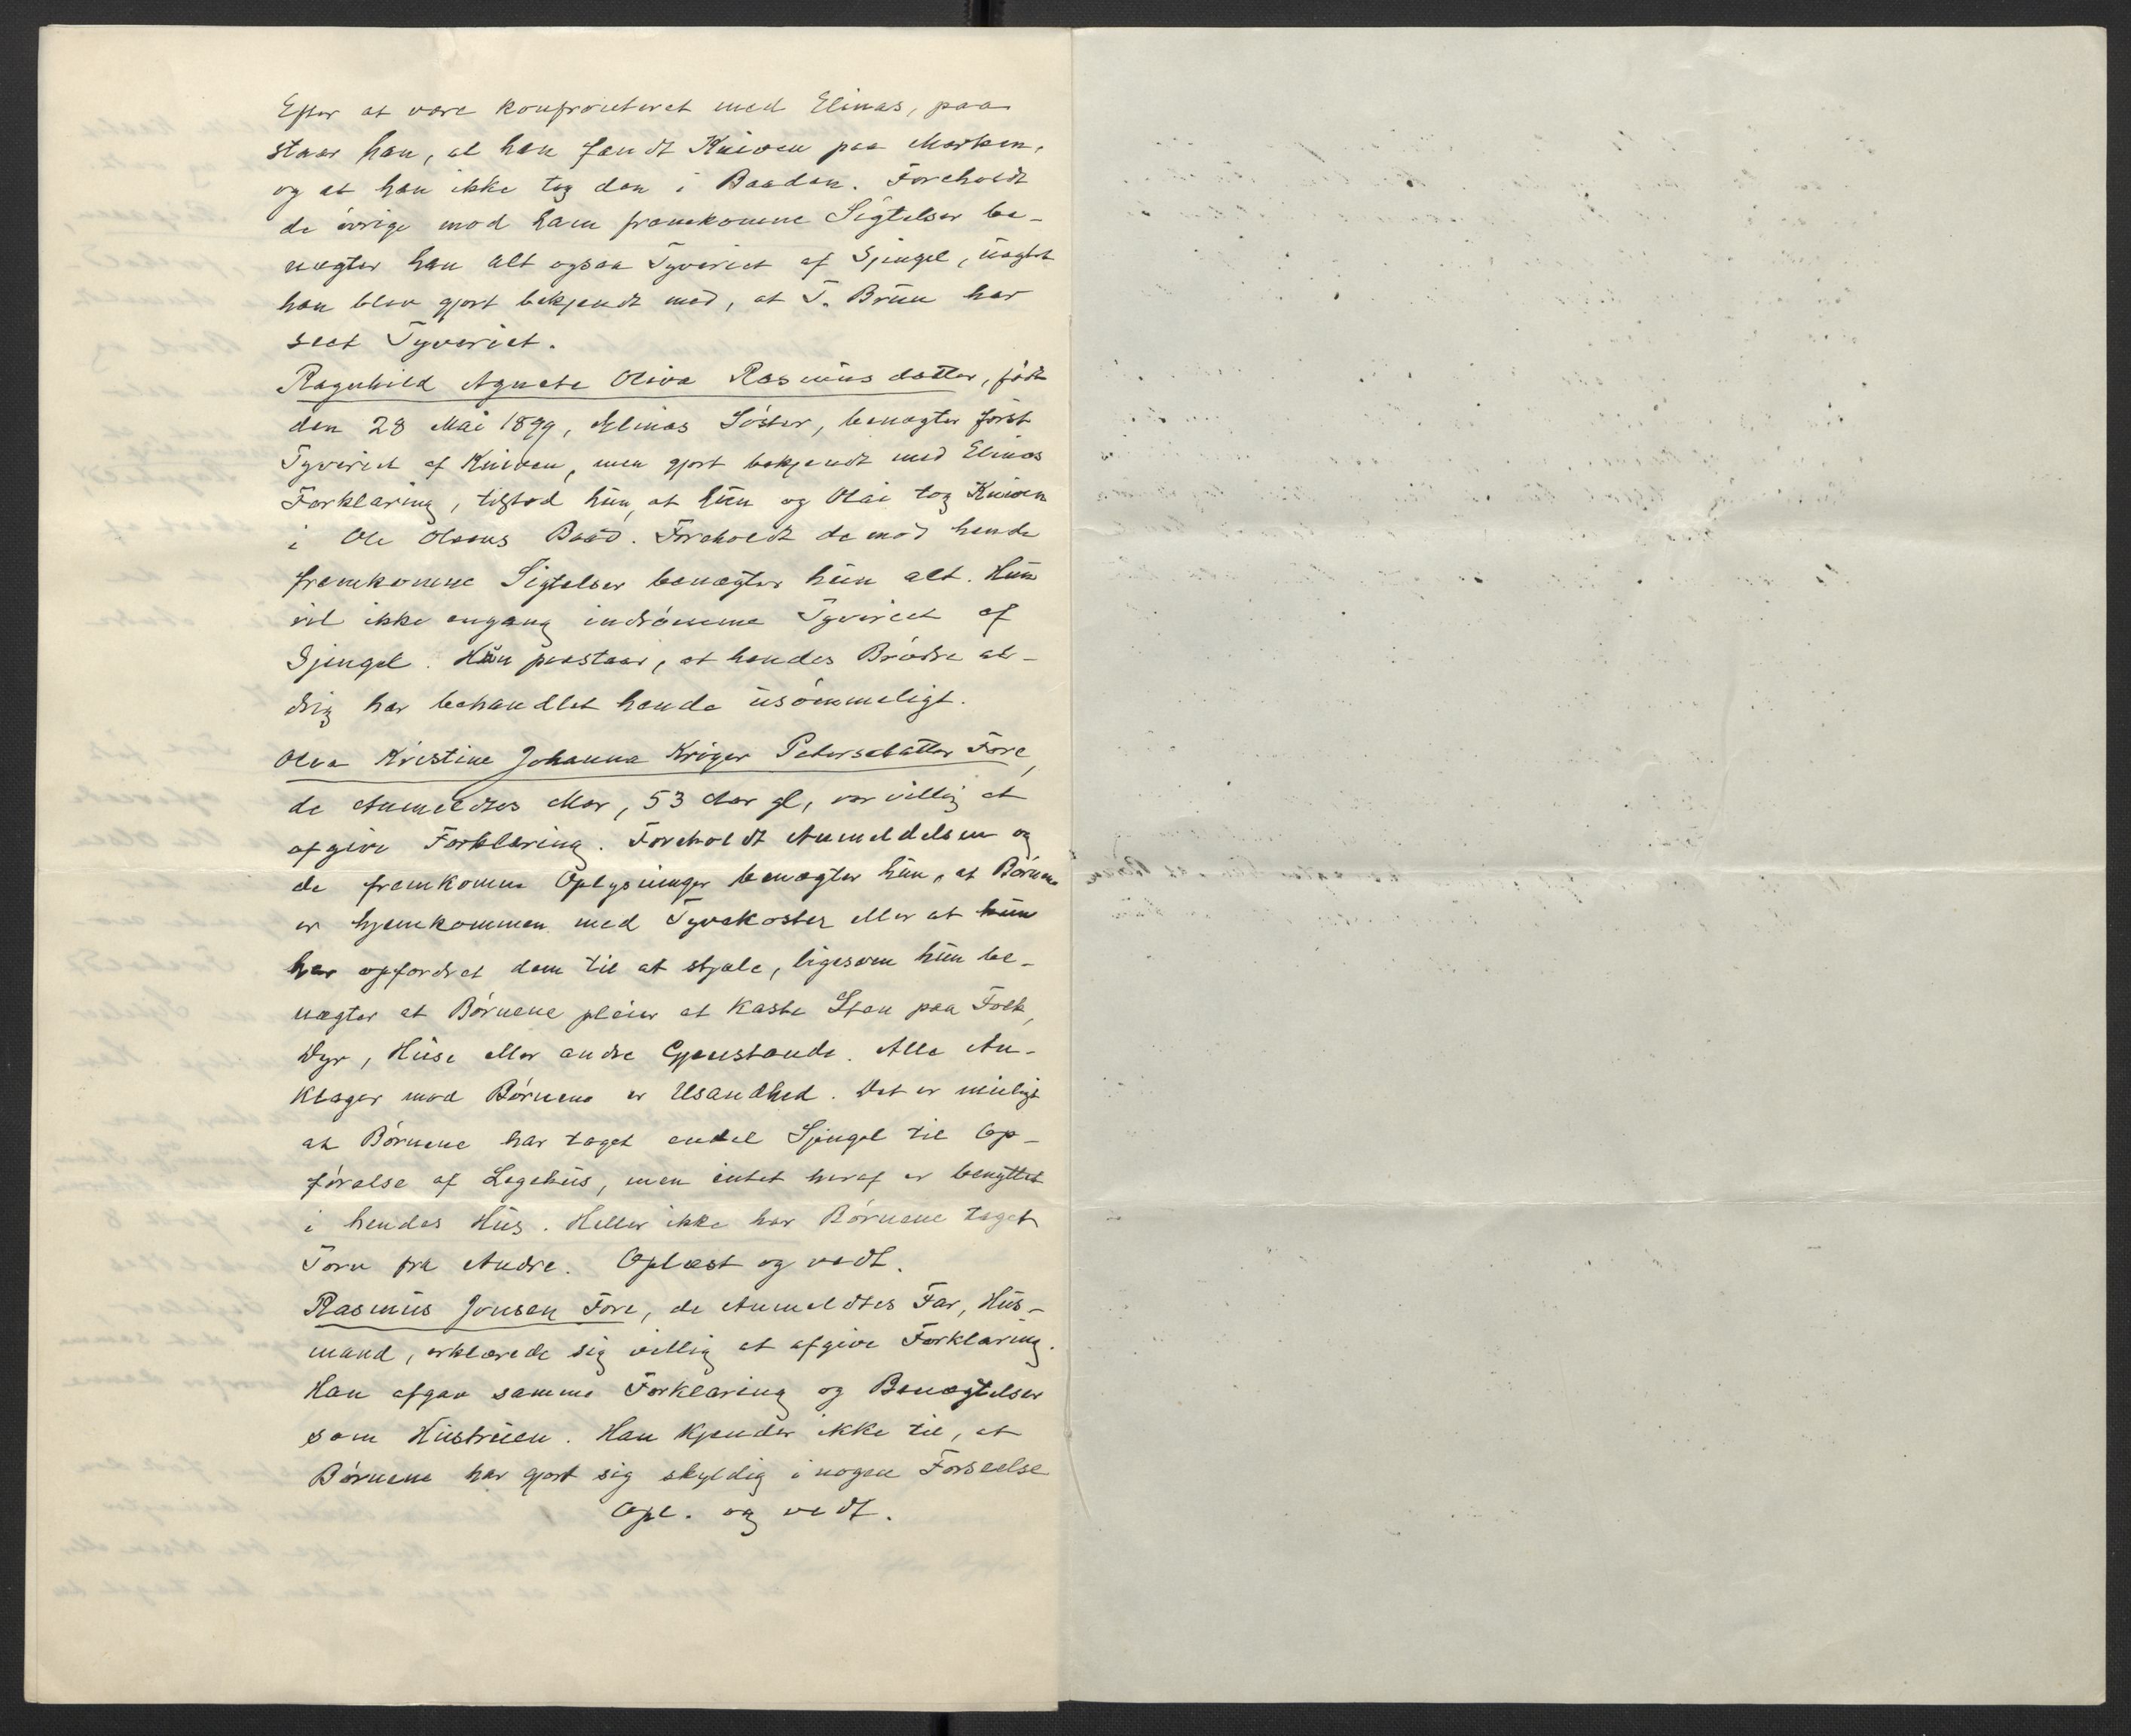 Efter at være konfronteret med Elinas, paa
staar han, at han fandt Kniven paa Marken,
og at han ikke tog den i Baaden. Foreholdt
de øvrige mod ham fremkomne Sigtelser be-
nægter han alt ogsaa Tyveriet af Spingel, uagtet
han blev gjort bekjendt med, at T. Brun har
seet Tyveriet.
Ragnhild Agnete Oliva Rasmusdatter, født
den 28 Mai 1899, Elinas Søster, benægter først
Tyveriet af Kniven, men gjort bekjendt med Elinas
Forklaring, tilstod hun, at hun og Olai tog Kniven
i Ole Olsens Baad. Foreholdt de mod hende
fremkomne Sigtelser benægter hun alt. Hun
vil ikke engang indrømme Tyveriet af
Spingel. Hun paastaar, at hendes Brødre al-
drig har behandlet hende usømmeligt.
Olea Kristine Johanna Kriger Petersdatter Fore,
de Anmeldtes Mor, 53 Aar gl, var villig at
afgive Forklaring. Foreholdt Anmeldelsen og
de fremkomne Oplysninger benægter hun, at Børnene
er hjemkommen med Tyvekoster eller at hun
har opfordret dem til at stjæle, ligesom hun be-
nægter at Børnene pleier at kaste Sten paa Folk,
Dyr, Huse eller andre Gjenstande. Alle An-
klager mod Børnene er Usandhed. Det er muligt
at Børnene har taget endel Spingel til Op-
førelse af Legehus, men intet heraf er benyttet
i hendes Hus. Heller ikke har Børnene taget
Torv fra Andre. Oplæst og vedt.
Rasmus Jonsen Fore, de Anmeldtes Far, Hus-
mand, erklærede sig villig at afgive Forklaring.
Han afgav samme Forklaring og Benægtelser
som Hustruen. Han kjender ikke til, at
Børnene har gjort sig skyldig i nogen Forseelse
Opl. og vedt.